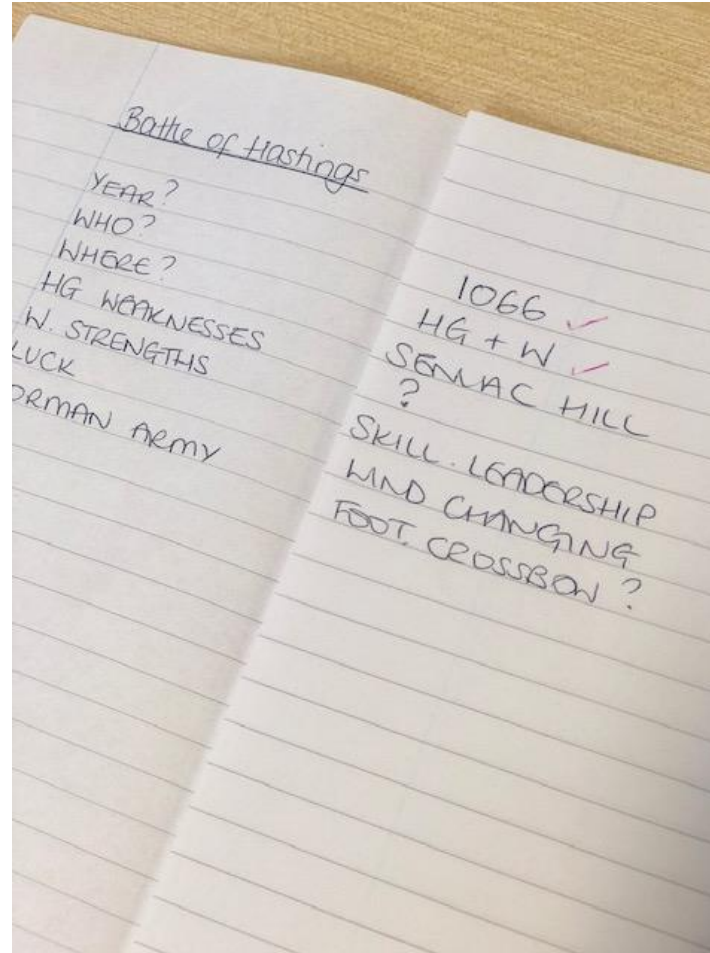 Battle of Hastings
YEAR?
WHO?
WHERE?
HG WEAKNESSES
W. STRENGTHS
LUCK
ORMAN ARMY
1066
HG + W
SENLAC HILL
?
SKILL. LEADERSHIP
WIND CHANGING
FOOT. CROSSBOW ?